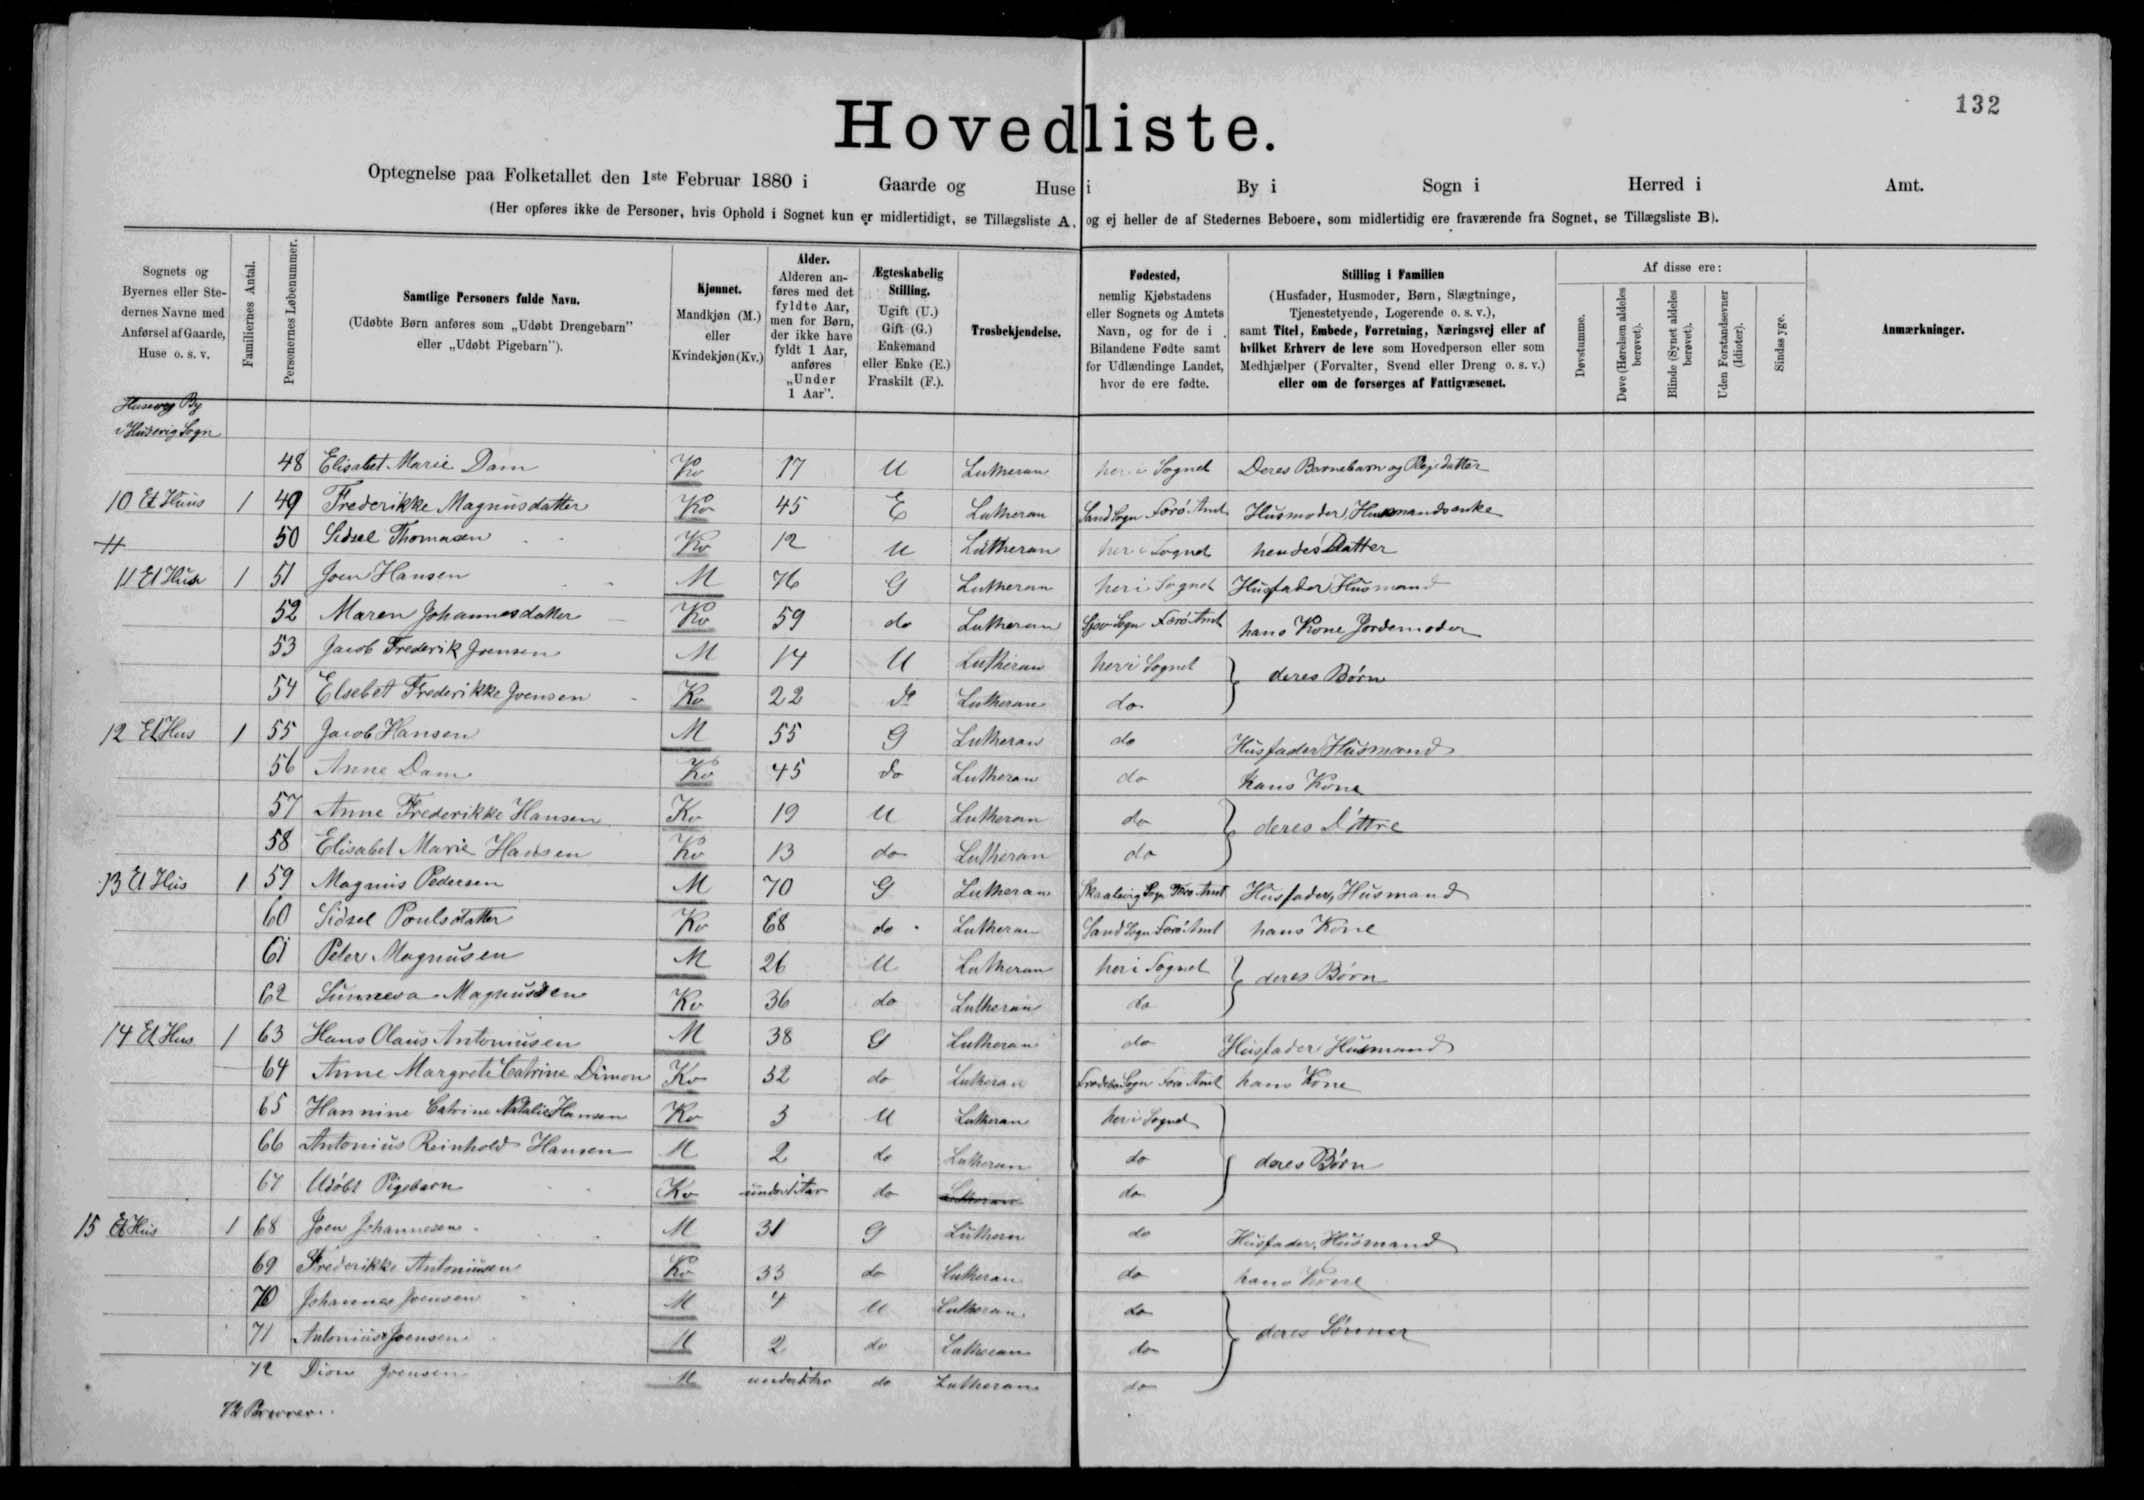 132
Hovedliste.
Optegnelse paa Folketallet den 1ste Februar 1880 i Gaarde og Huse i By i Sogn i Herred i Amt.
(Her opføres ikke de Personer, hvis Ophold i Sognet kun er midlertidigt, se Tillægsliste A, og ej heller de af Stedernes Beboere, som midlertidig ere fraværende fra Sognet, se Tillægsliste B).
Sognets og Byernes eller Stedernes Navne med Anførsel af Gaarde, Huse o. s. v.
Familiernes Antal.
Personernes Løbenummer.
Samtlige Personers fulde Navn.
(Udøbte Børn anføres som „Udøbt Drengebarn" eller „Udøbt Pigebarn").
Kjønnet.
Mandkjøn (M.) eller Kvindekjøn (Kv.)
Alder.
Alderen anføres med det fyldte Aar, men for Børn, der ikke have fyldt 1 Aar, anføres „Under 1 Aar".
Ægteskabelig Stilling.
Ugift (U.) Gift (G.) Enkemand eller Enke (E.) Fraskilt (F.).
Trosbekjendelse.
Fødested,
nemlig Kjøbstadens eller Sognets og Amtets Navn, og for de i Bilandene Fødte samt for Udlændinge Landet, hvor de ere fødte.
Stilling i Familien
(Husfader, Husmoder, Børn, Slægtninge, Tjenestetyende, Logerende o. s. v.), samt Titel, Embede, Forretning, Næringsvej eller af hvilket Erhverv de leve som Hovedperson eller som Medhjælper (Forvalter, Svend eller Dreng o. s. v.) eller om de forsørges af Fattigvæsenet.
Af disse ere:
Døvstumme.
Døve (Hørelsen aldeles berøvet).
Blinde (Synet aldeles berøvet).
Uden Forstandsevner (Idioter).
Sindssyge.
Anmærkninger.
Husevig By
i Husevig Sogn
48 Elisabet Marie Dam Kv 17 U Lutheran her i Sognet Deres Barnebarn og Plejedatter
10 Et Huus 1 49 Frederikke Magnusdatter Kv 45 E Lutheran Sand Sogn Færö Amt Husmoder, Husmandsenke
50 Sidsel Thomasen Kv 12 U Lutheran her i Sognet hendes Datter
11 Et Hus 1 51 Joen Hansen M 76 G Lutheran her i Sognet Husfader Husmand
52 Maren Johannesdatter Kv 59 do Lutheran Sogn Færö Amt hans Kone Jordemoder
53 Jacob Frederik Joensen M 14 U Lutheran her i Sognet deres Börn
54 Elsebet Frederikke Joensen Kv 22 do Lutheran do
12 Et Hus 1 55 Jacob Hansen M 55 G Lutheran do Husfader Husmand
56 Anne Dam Kv 45 do Lutheran do hans Kone
57 Anne Frederikke Hansen Kv 19 U Lutheran do deres Döttre
58 Elisabet Marie Hansen Kv 13 do Lutheran do
13 Et Hus 1 59 Magnus Pedersen M 70 G Lutheran Skaalevig Sogn Færö Amt Husfader, Husmand
60 Sidsel Poulsdatter Kv 68 do Lutheran Sand Sogn Færö Amt hans Kone
61 Peter Magnusen M 26 U Lutheran her i Sognet deres Börn
62 Sunneva Magnussen Kv 36 do Lutheran do
14 Et Hus 1 63 Hans Olaus Antoniusen M 38 G Lutheran do Husfader Husmand
64 Anne Margrete Catrine Dimon Kv 32 do Lutheran Sogn Færö Amt hans Kone
65 Hannine Catrine Natalie Hansen Kv 3 U Lutheran her i Sognet
66 Antonius Reinhold Hansen M 2 do Lutheran do deres Börn
67 Udöbt Pigebarn Kv under 1 Aar do Lutheran do
15 Et Hus 1 68 Joen Johannesen M 31 G Luthern do Husfader, Husmand
69 Frederikke Antoniusen Kv 33 do Lutheran do hans Kone
70 Johannes Joensen M 4 U Lutheran do
71 Antonius Joensen M 2 do Lutheran do deres Sönner
72 Joensen M under 1 Aar do Lutheran do